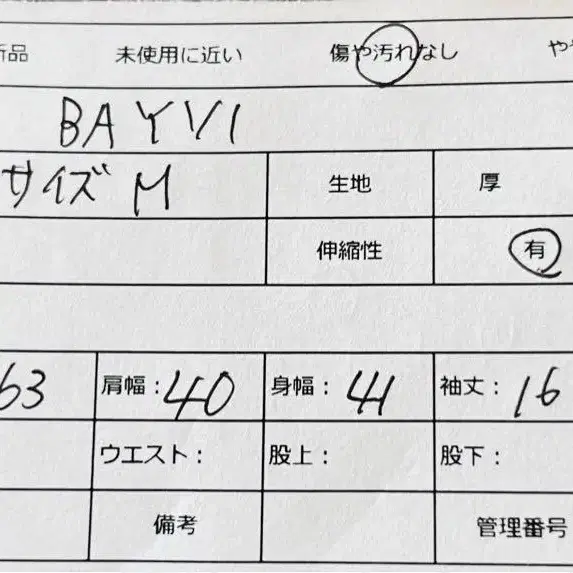 新品 未使用に近い 傷や汚れなし やや
BAYVI
サイズ M 生地 厚
伸縮性 有
63 肩幅：40 身幅：41 袖丈：16
ウエスト： 股上： 股下：
備考 管理番号